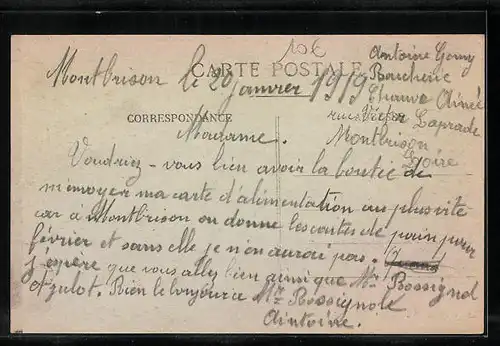 10€
CARTE POSTALE
Montbrison le 29 janvier 1919
Antoine Gomy
Boucherie
Chauve Ainée
rue Victor Laprade
Montbrison
Loire
CORRESPONDANCE
Madame.
Voudriez-vous bien avoir la bontée de
m'envoyer ma carte d'alimentation au plus vite
car à Montbrison on donne les cartes de pain pour
février et sans elle je n'en aurai pas.
j'espère que vous allez bien ainsi que Mr Rossignol
Bien le bonjour a Mr Rossignole
Antoine.